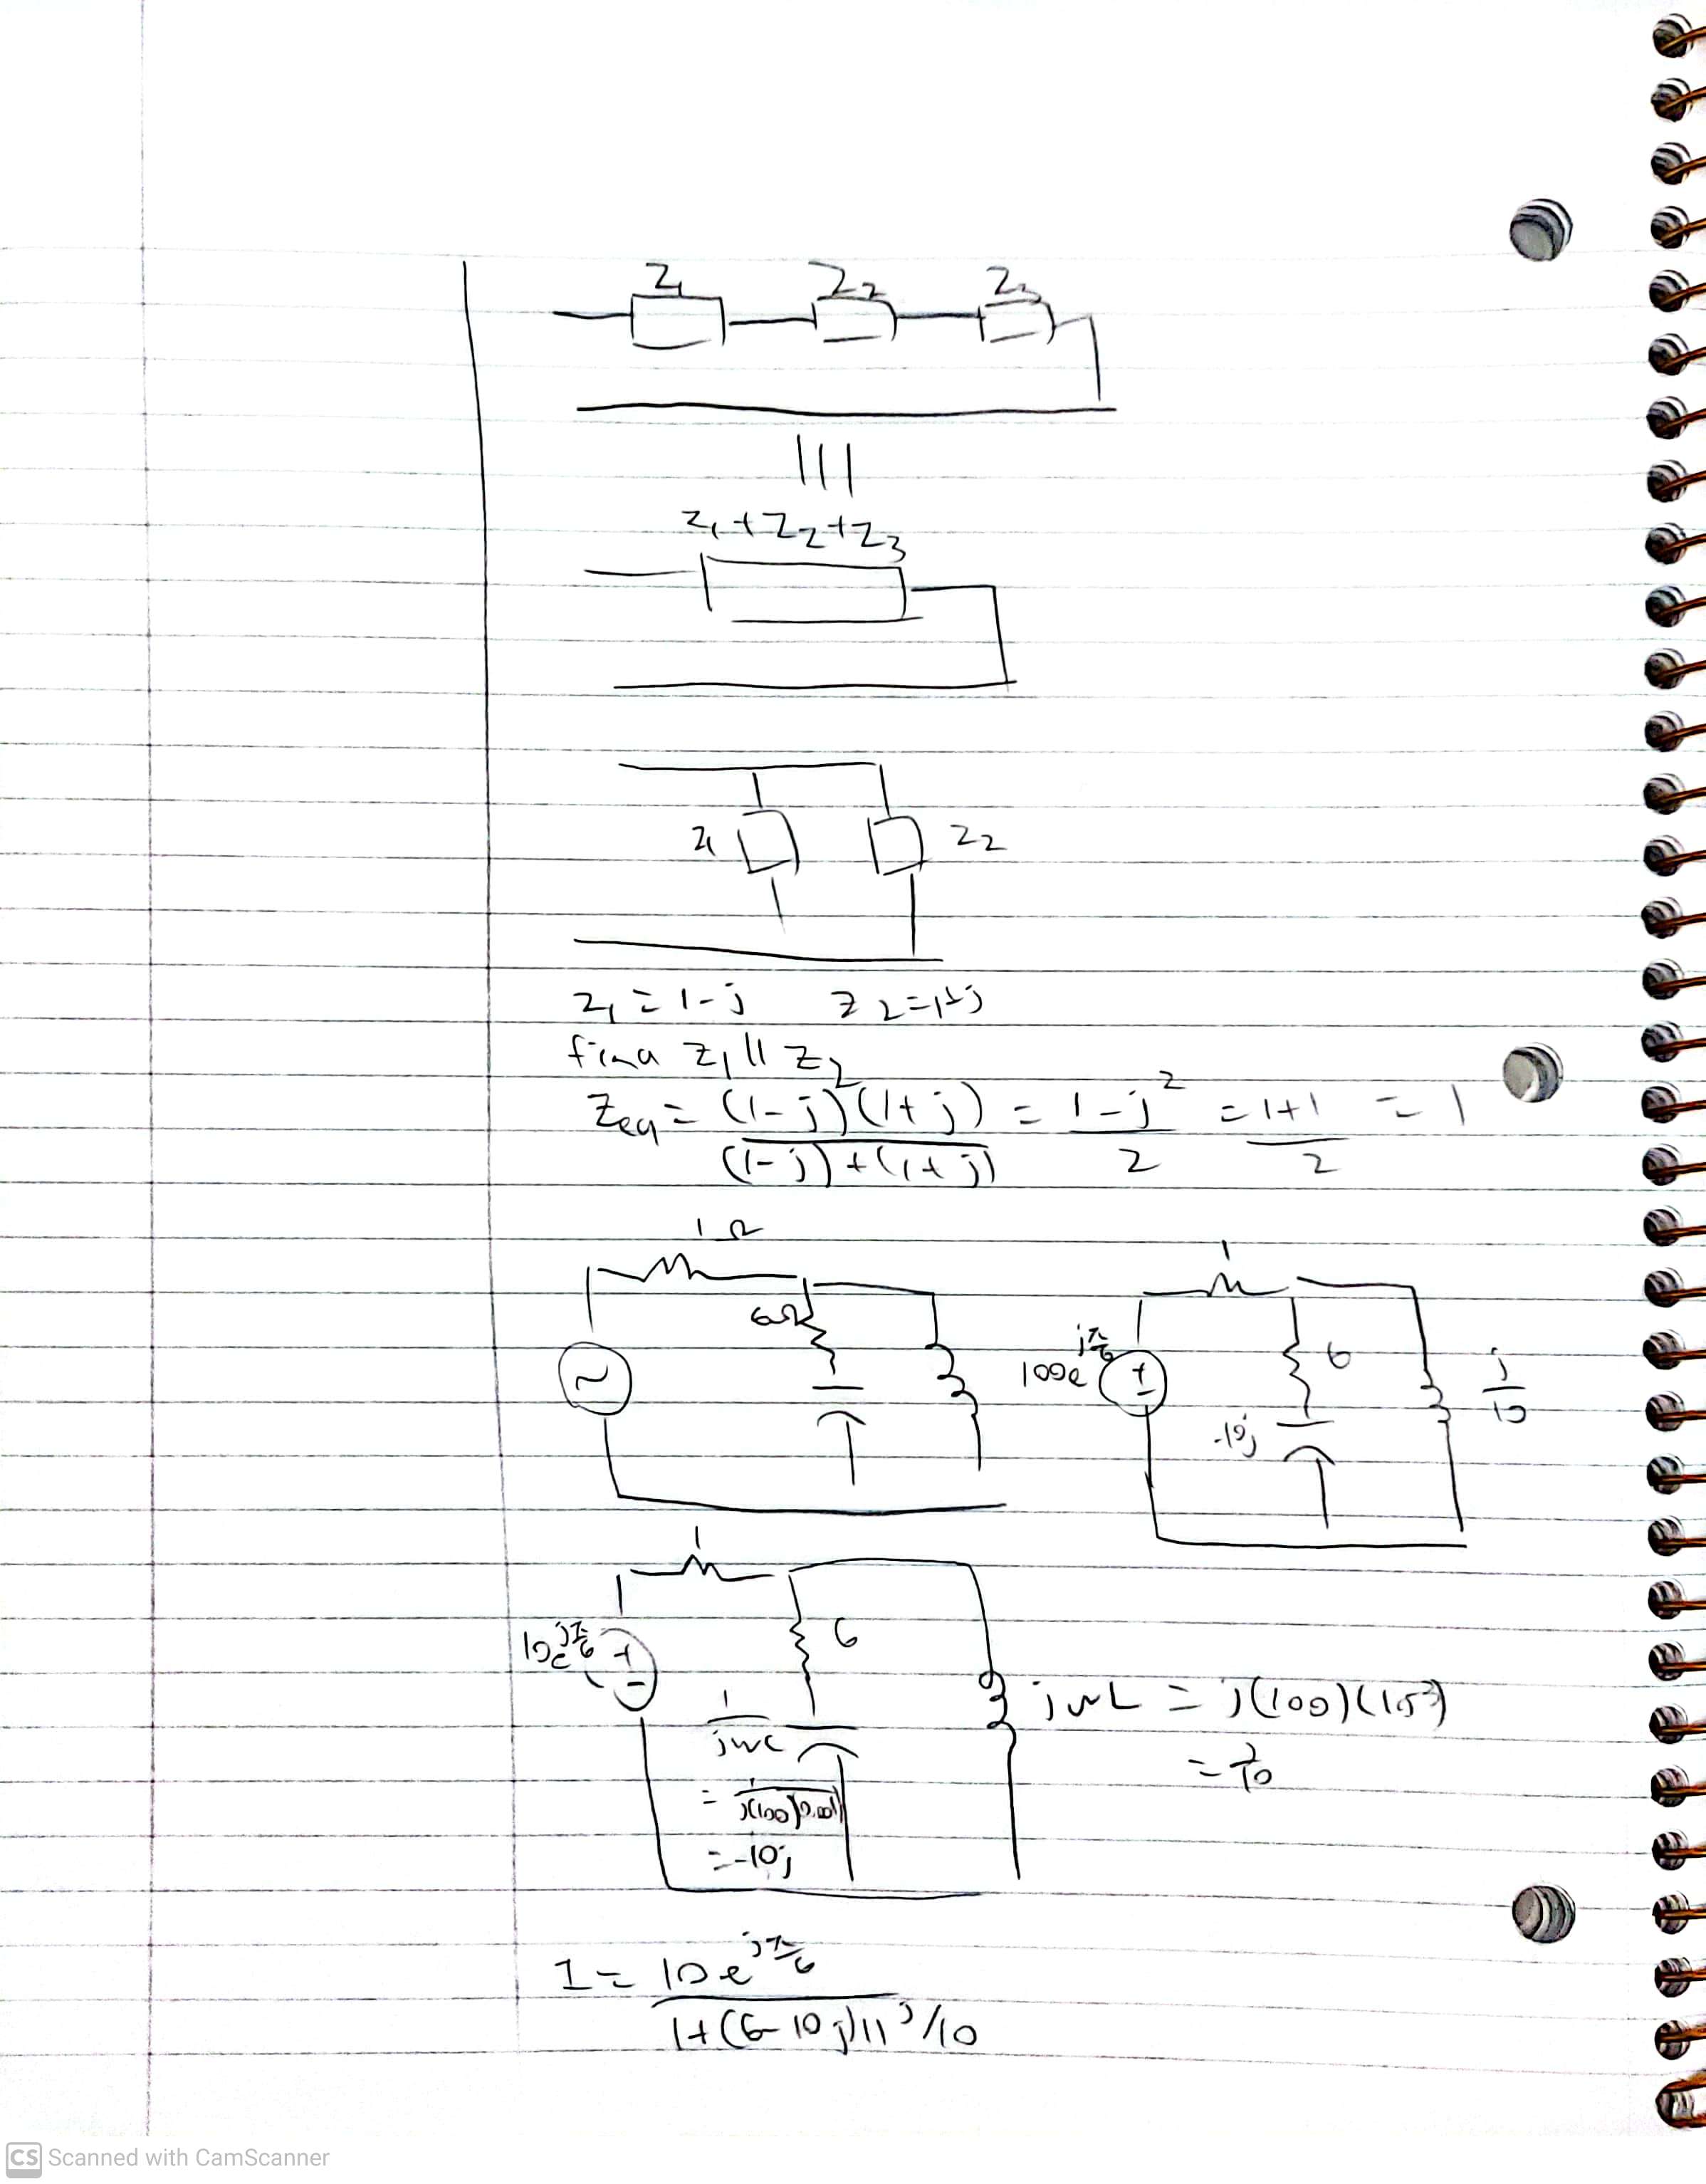 Z1 Z2 Z3
|||
Z1+Z2+Z3
Z1 Z2
Z1 = 1-j Z2=1+j
find Z1 || Z2
Zeq = (1-j)(1+j) / (1-j)+(1+j) = 1-j² / 2 = 1+1 / 2 = 1
1Ω
6Ω
~
1
100e^jπ/6 + -
6
-10j
j/10
1
10e^jπ/6 + -
6
1/jωC
= 1/j(100)(0.001)
= -10j
jωL = j(100)(10⁻³)
= j/10
I = 10e^jπ/6 / 1+(6-10j)||j/10
CS Scanned with CamScanner